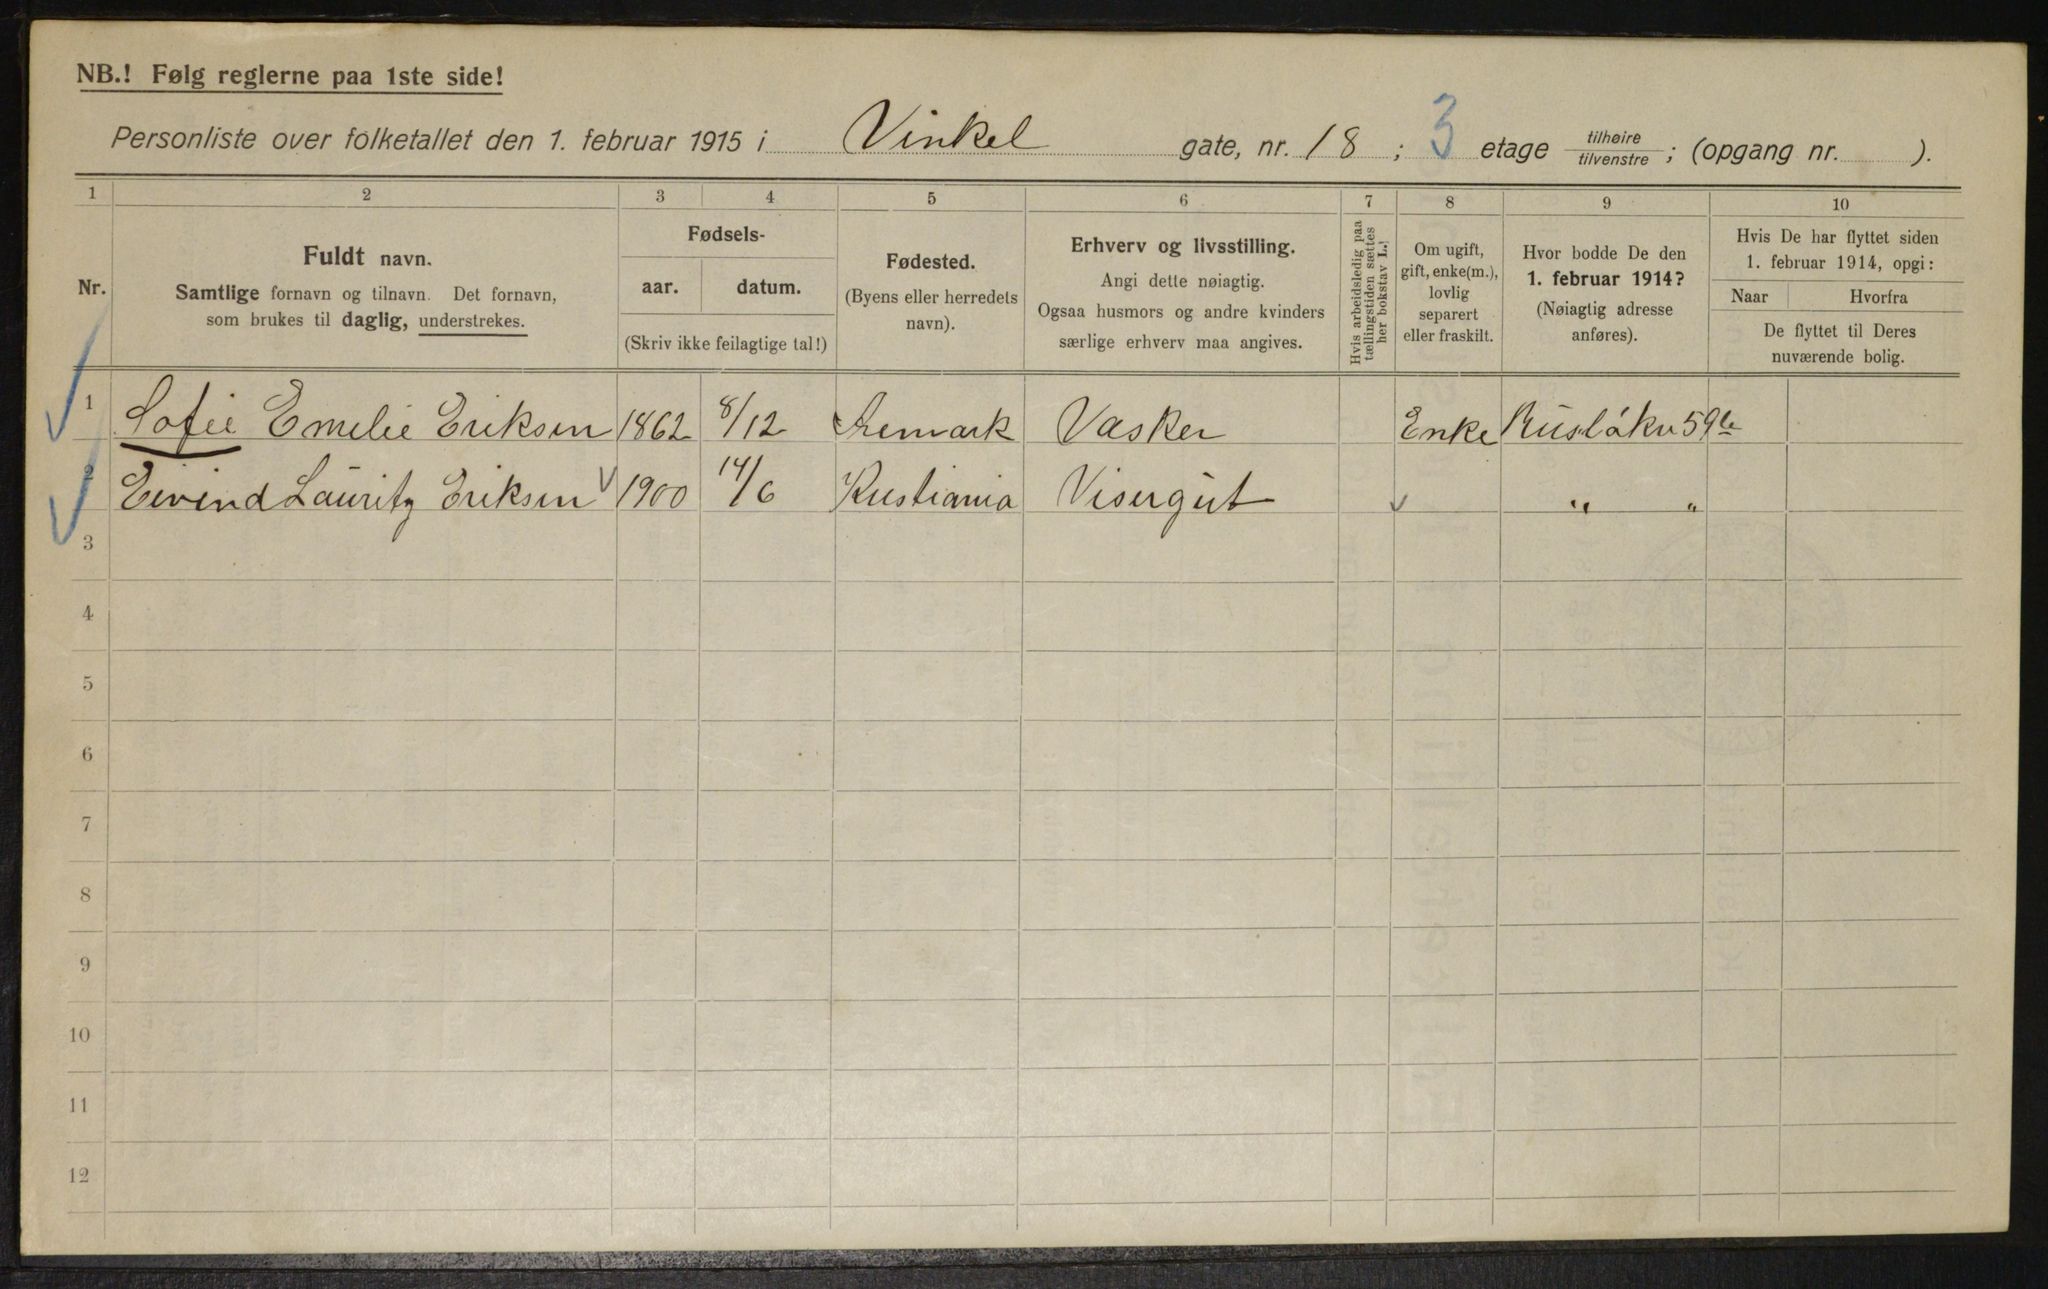 NB.! Følg reglerne paa 1ste side!
Personliste over folketallet den 1. februar 1915 i Vinkel gate, nr. 18 ; 3 etage tilhøire/tilvenstre ; (opgang nr. ).
1 2 3 4 5 6 7 8 9 10
Nr.
Fuldt navn.
Samtlige fornavn og tilnavn. Det fornavn,
som brukes til daglig, understrekes.
Fødsels-
aar. datum.
(Skriv ikke feilagtige tal!)
Fødested.
(Byens eller herredets
navn).
Erhverv og livsstilling.
Angi dette nøiagtig.
Ogsaa husmors og andre kvinders
særlige erhverv maa angives.
Hvis arbeidsledig paa
tællingstiden sættes
her bokstav L.!
Om ugift,
gift, enke(m.),
lovlig
separert
eller fraskilt.
Hvor bodde De den
1. februar 1914?
(Nøiagtig adresse
anføres).
Hvis De har flyttet siden
1. februar 1914, opgi:
Naar Hvorfra
De flyttet til Deres
nuværende bolig.
1 Sofie Emelie Eriksen 1862 8/12 Aremark Vasker Enke 59
2 Eivind Lauritz Eriksen 1900 14/6 Kristiania Visergut " "
3
4
5
6
7
8
9
10
11
12